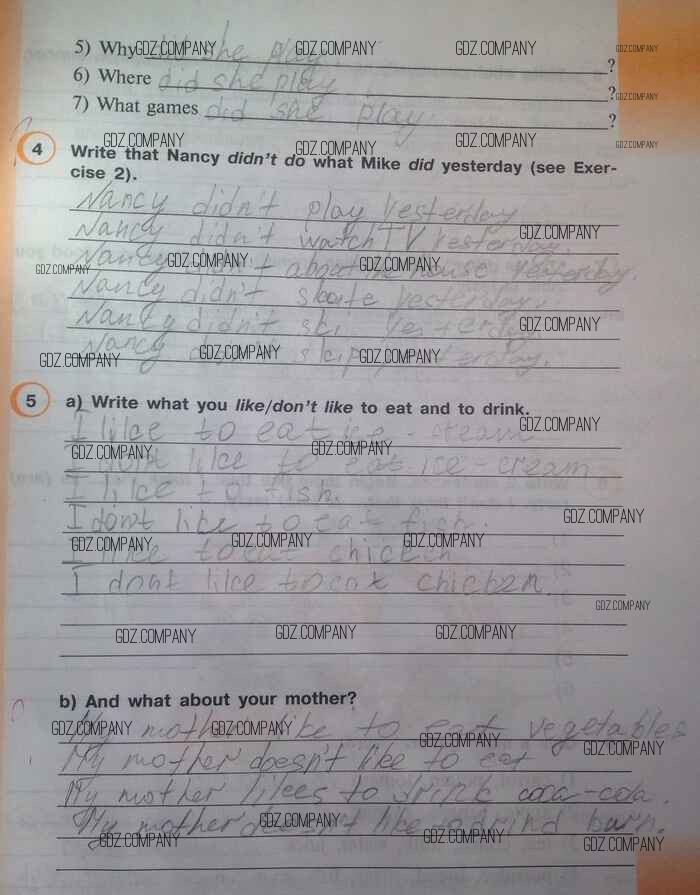 5) Why did she play ?
6) Where did she play ?
7) What games did she play. ?
4 Write that Nancy didn't do what Mike did yesterday (see Exer-
cise 2).
Nancy didn't play yesterday
Nancy didn't watch TV yesterday.
Nancy about the house yesterday.
Nancy didn't skate yesterday.
Nancy didn't ski yesterday
Nancy skip yesterday.
5 a) Write what you like/don't like to eat and to drink.
I like to eat ice-cream
I don't like to eat ice-cream
I like to fish.
I don't like to eat fish.
I like to eat chicken
I dont like to eat chicken.
b) And what about your mother?
My mother like to eat vegetables
My mother doesn't like to eat
My mother likees to drink coca-cola.
My mother doesn't like
GDZ.COMPANY